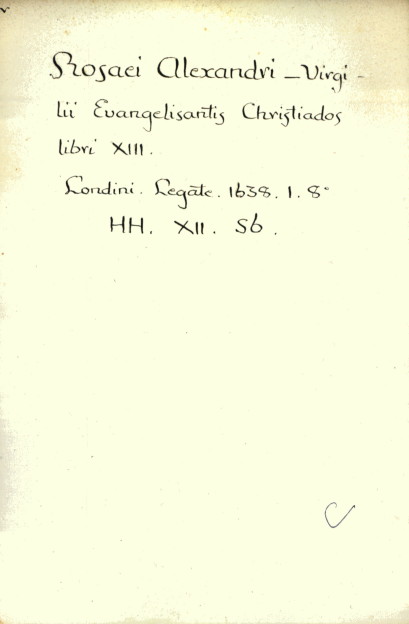 Rosaei Alexandri – Virgi-
lii Evangelisantis Christiados
libri XIII.
Londini. Legāte. 1638. 1. 8°
HH. XII. 56.